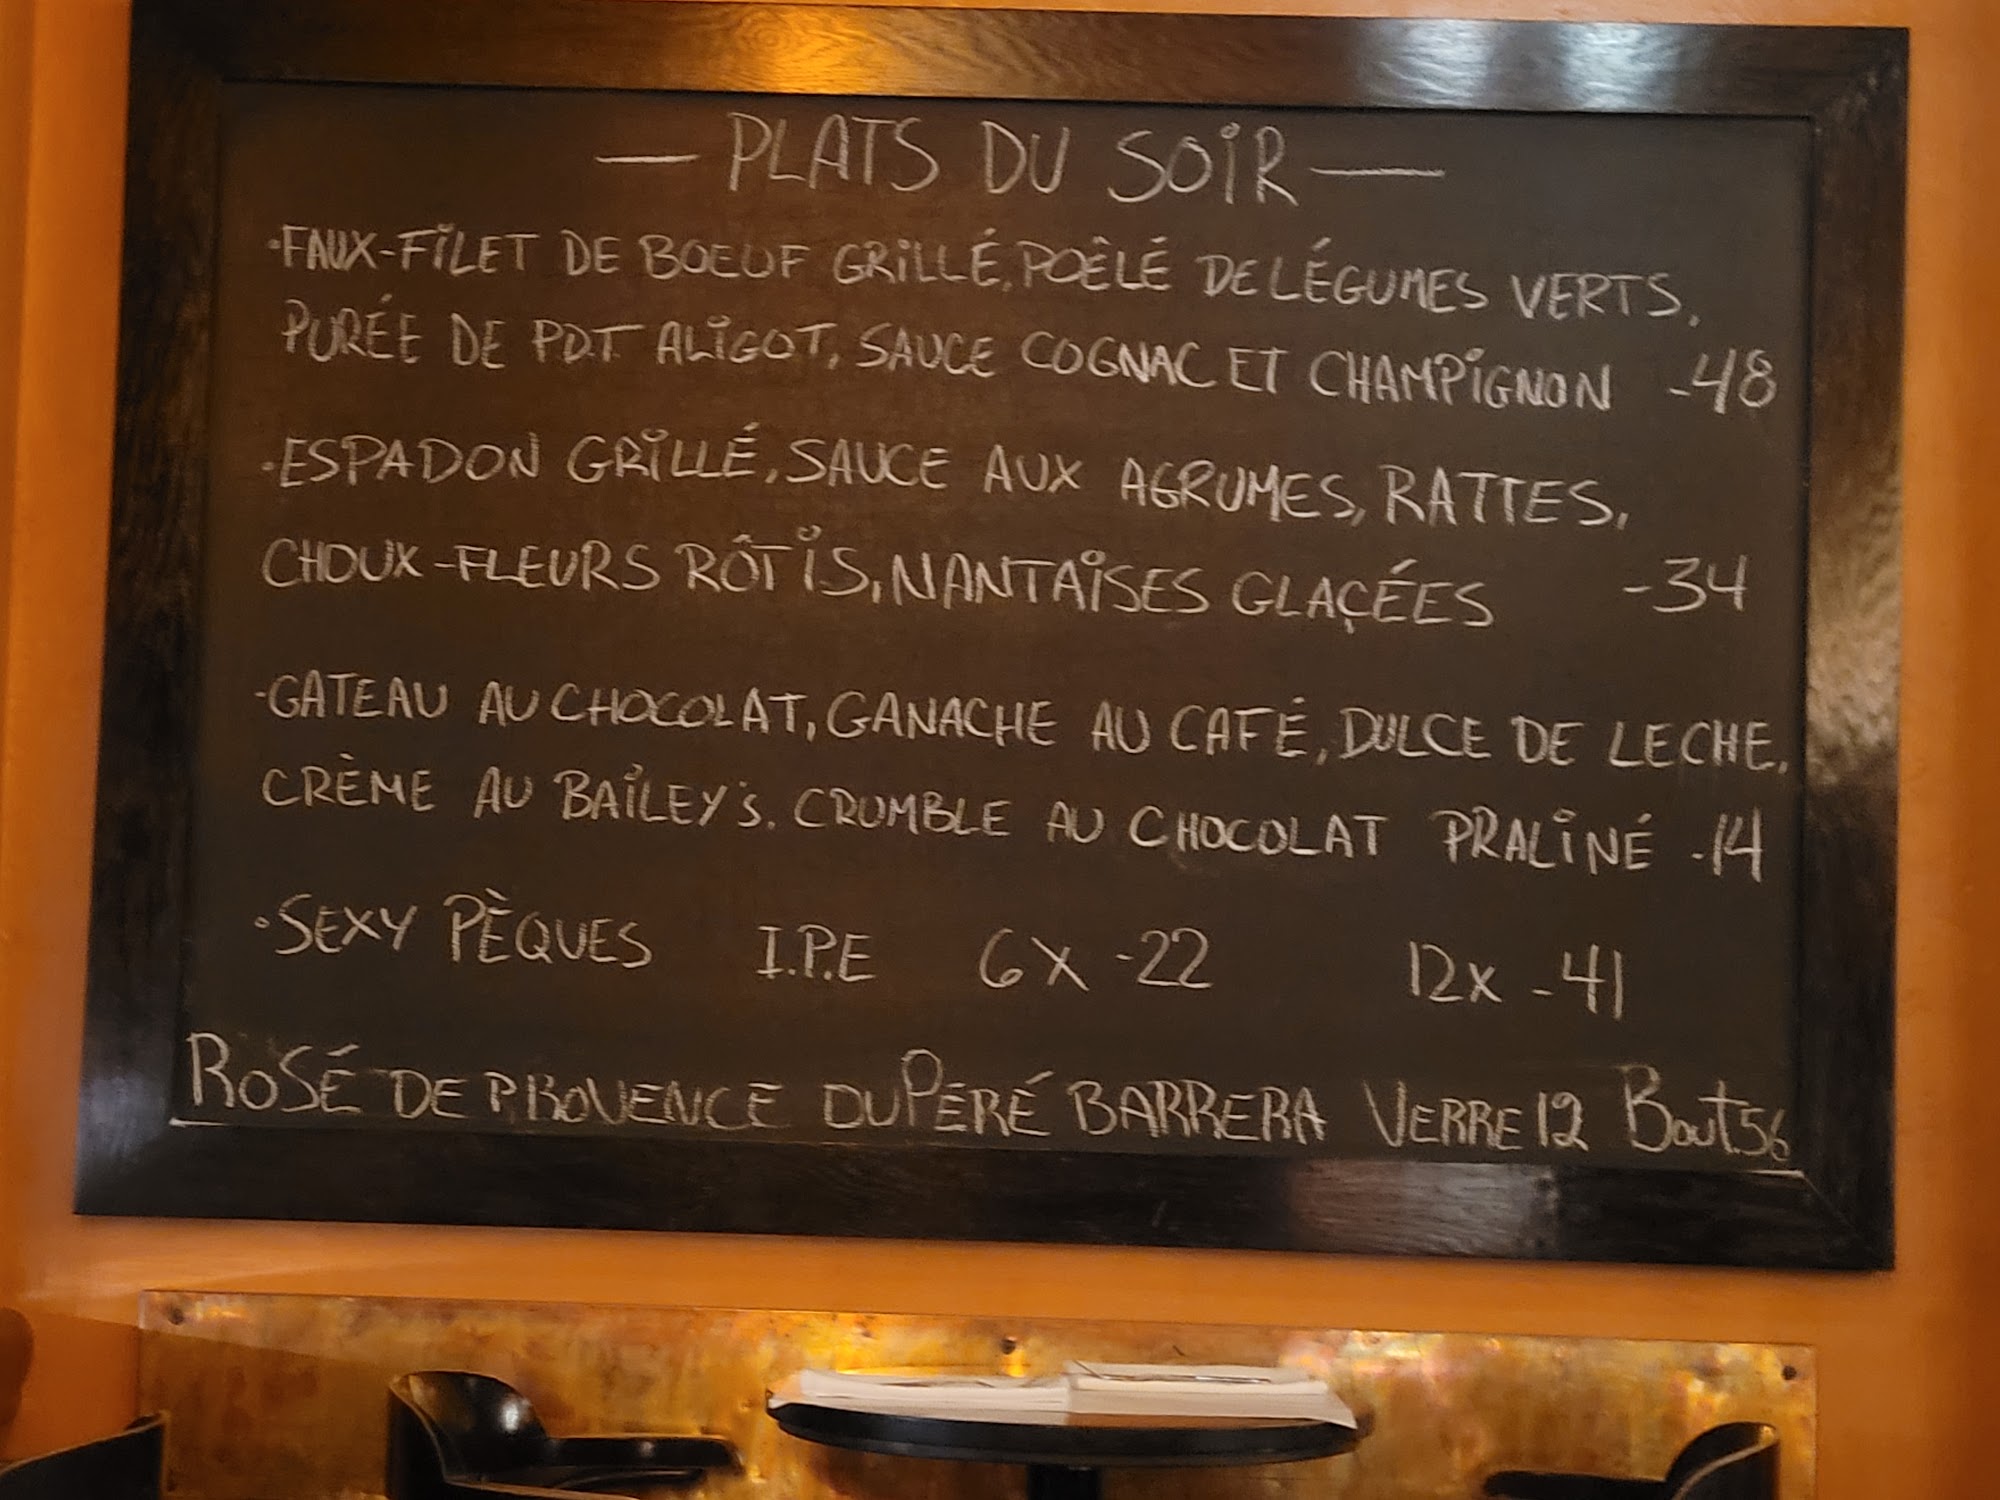 — PLATS DU SOIR —
·FAUX-FILET DE BOEUF GRILLÉ, POÊLÉ DE LÉGUMES VERTS,
PURÉE DE P.D.T ALIGOT, SAUCE COGNAC ET CHAMPIGNON -48
·ESPADON GRILLÉ, SAUCE AUX AGRUMES, RATTES,
CHOUX-FLEURS RÔTIS, NANTAISES GLAÇÉES -34
·GATEAU AU CHOCOLAT, GANACHE AU CAFÉ, DULCE DE LECHE,
CRÈME AU BAILEY'S. CRUMBLE AU CHOCOLAT PRALINÉ -14
·SEXY PÈQUES I.P.E 6X -22 12X -41
ROSÉ DE PROVENCE DU PÉRÉ BARRERA VERRE 12 Bout. 56